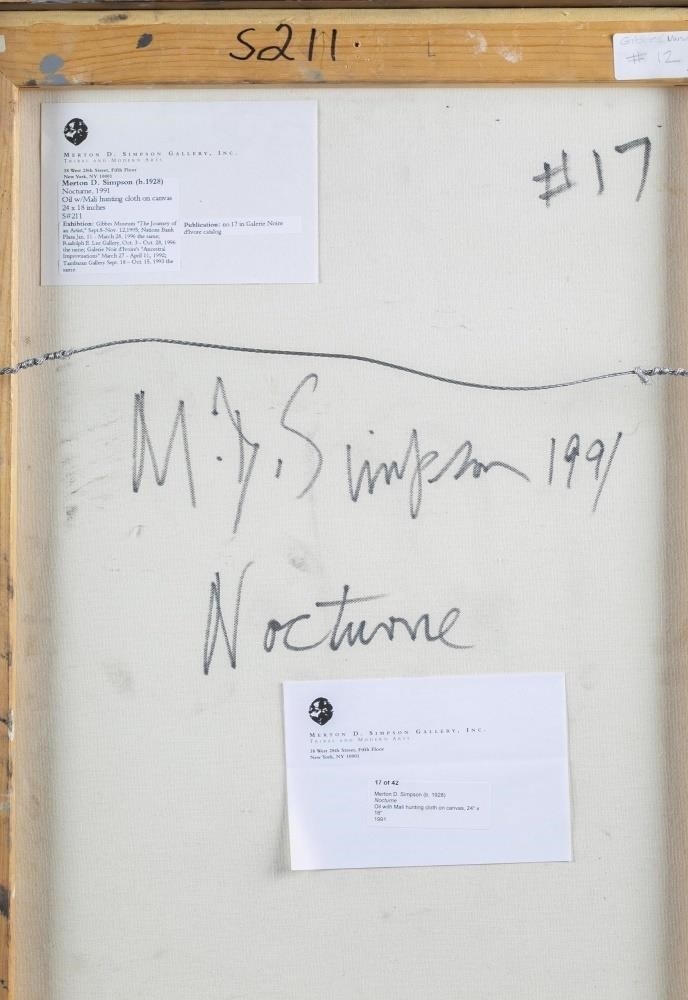 S211
# 12
#17
MERTON D. SIMPSON GALLERY, INC.
TRIBAL AND MODERN ARTS
38 West 28th Street, Fifth Floor
New York, NY 10001
Merton D. Simpson (b.1928)
Nocturne, 1991
Oil w/Mali hunting cloth on canvas
24 x 18 inches
S#211
Exhibition: Gibbes Museum "The Journey of
an Artist," Sept.8-Nov. 12,1995; Nations Bank
Plaza Jan. 11 - March 28, 1996 the same;
Rudolph E. Lee Gallery, Oct. 3 - Oct. 28, 1996
the same; Galerie Noir d'Ivoire's "Ancestral
Improvisations" March 27 - April 11, 1992;
Tambaran Gallery Sept. 18 - Oct. 15, 1993 the
same
Publication: no.17 in Galerie Noire
d'Ivore catalog
M. D. Simpson 1991
Nocturne
MERTON D. SIMPSON GALLERY, INC.
TRIBAL AND MODERN ARTS
38 West 28th Street, Fifth Floor
New York, NY 10001
17 of 42
Merton D. Simpson (b. 1928)
Nocturne
Oil with Mali hunting cloth on canvas, 24" x
18"
1991